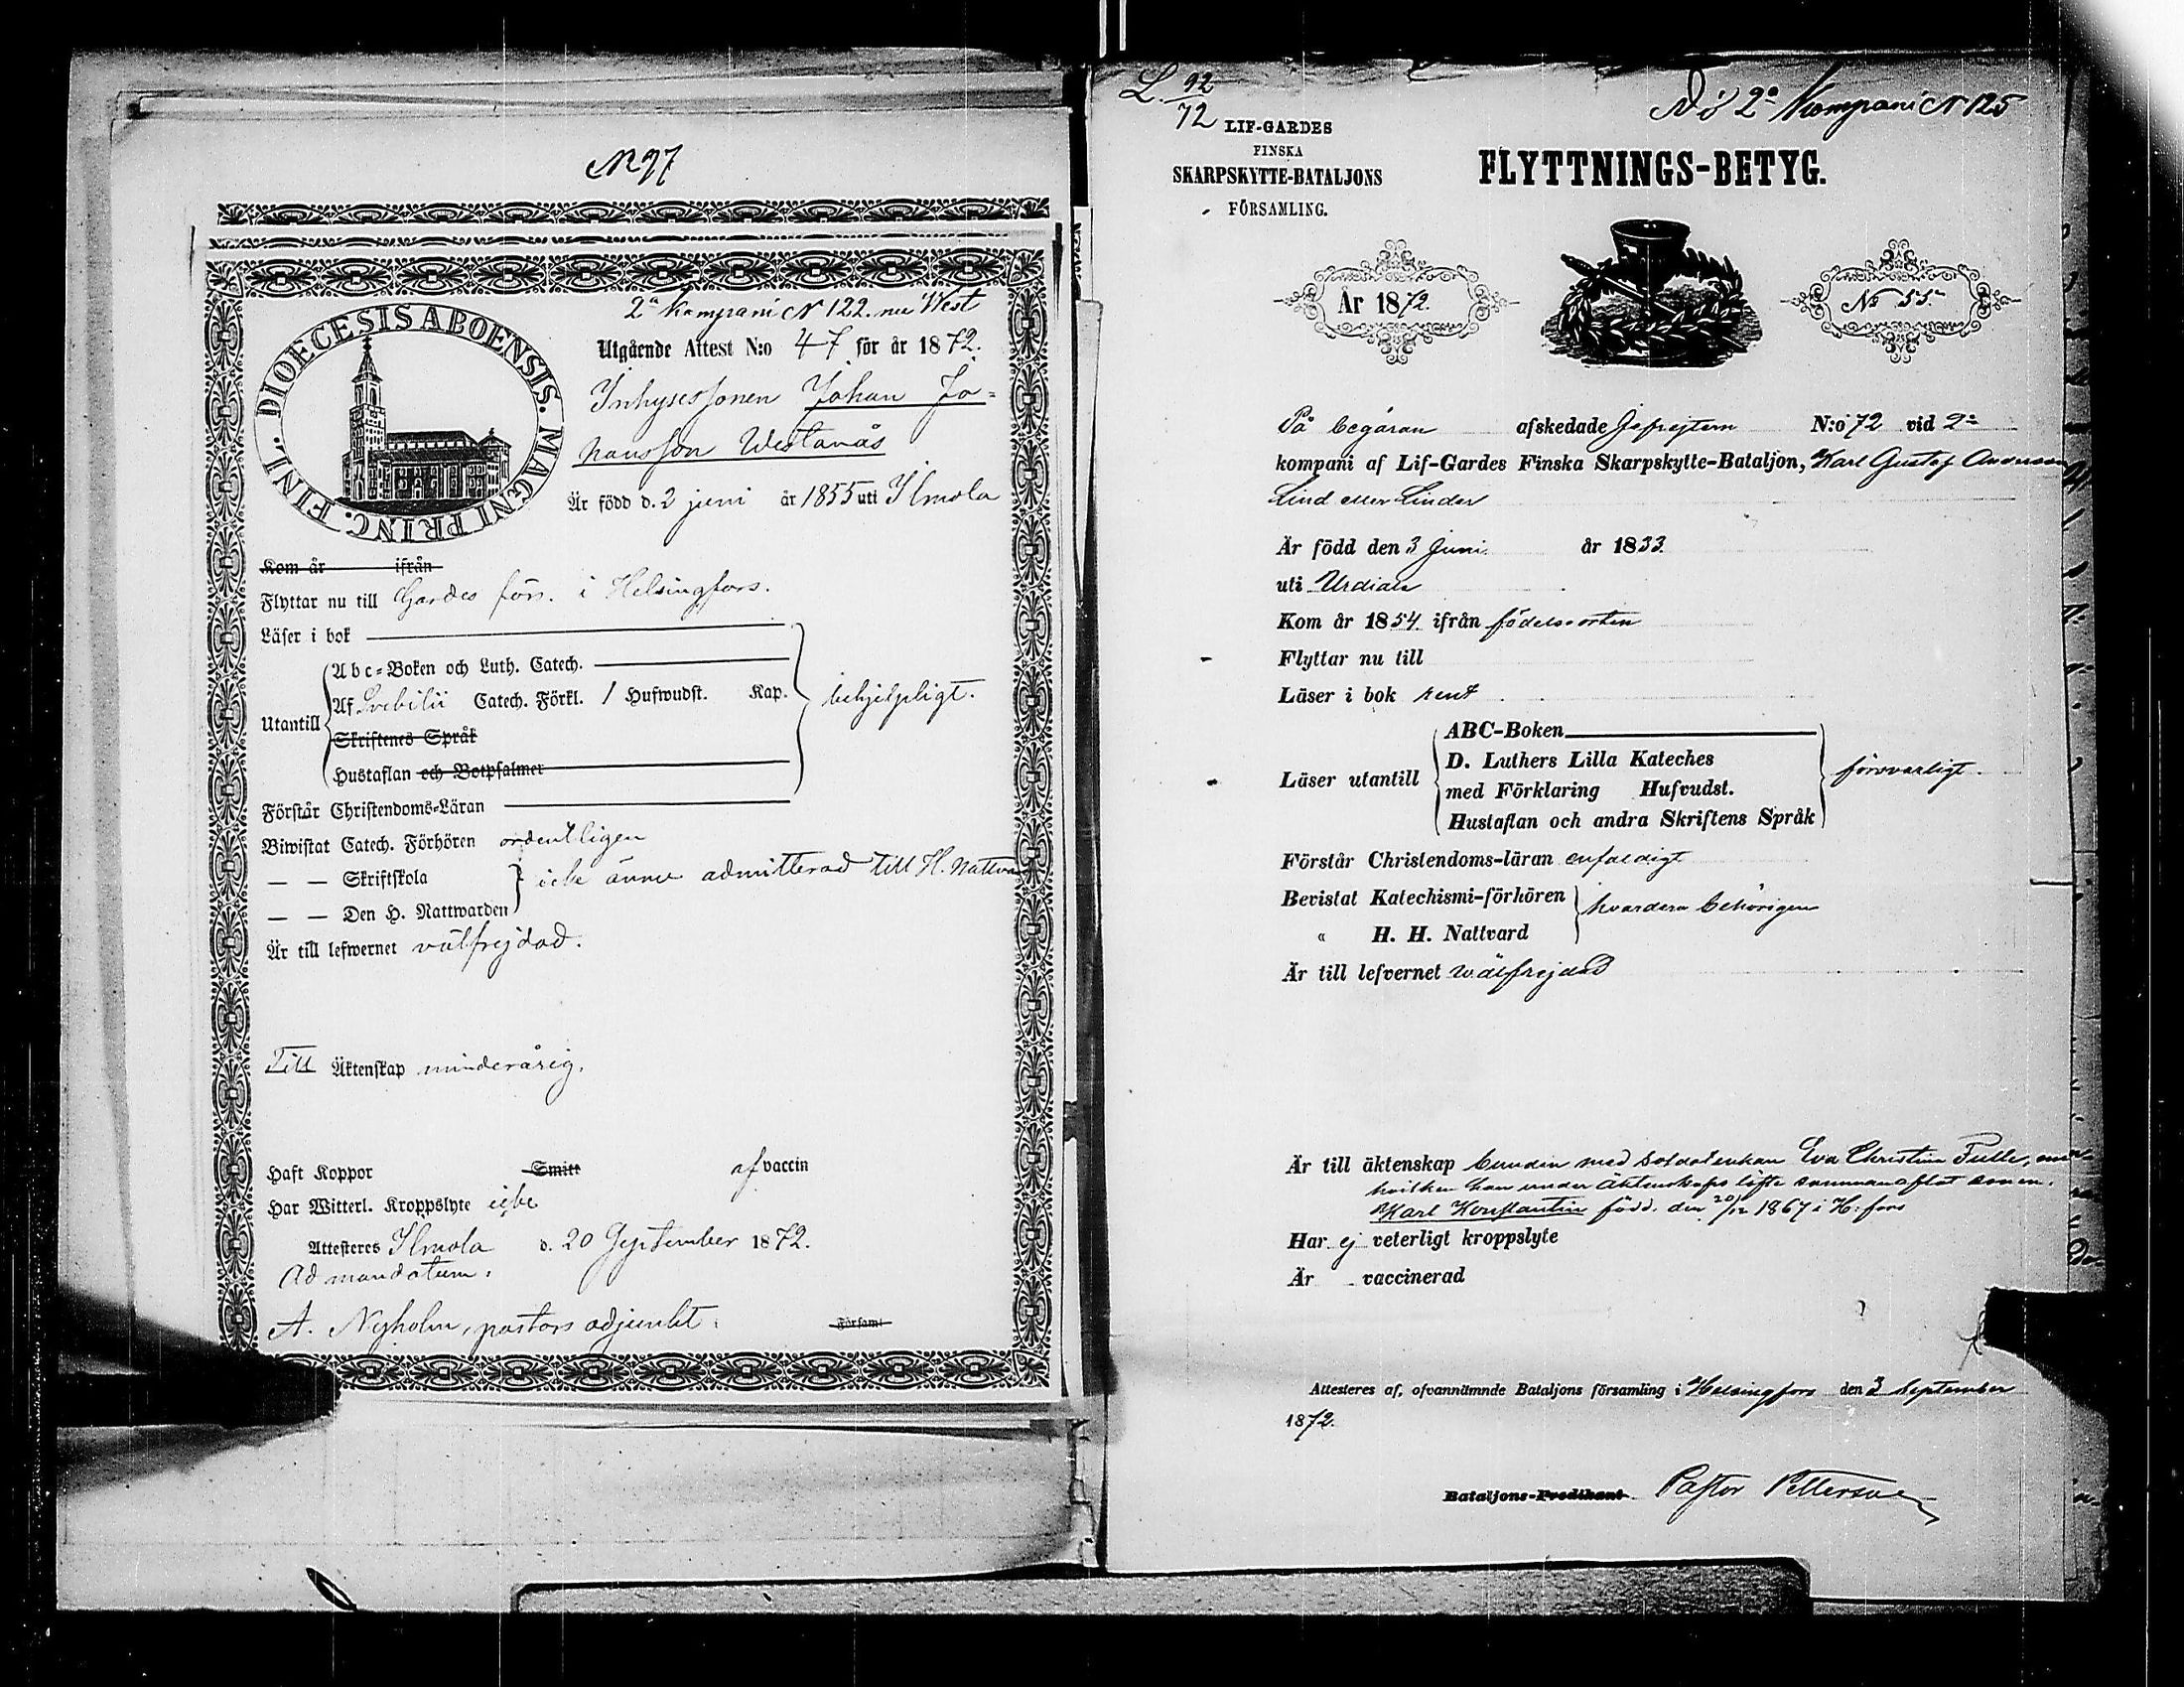 N 97
DIOECESIS ABOENSIS. MAGNI PRINC. FINL.
2a Kompani N 122. nu West
Utgående Attest N:o 47 för år 1872.
Inhysessonen Johan Jo-
hansson Westanås
Är född d. 2 juni år 1855 uti Ilmola
Kom år ifrån
Flyttar nu till Gardes förs. i Helsingfors.
Läser i bok
Utantill
Abc-Boken och Luth. Catech.
Af Svebilii Catech. Förkl. 1 Hufwudst. Kap.
behjelpligt.
Skriftenes Språk
Hustaflan och Botpsalmer
Förstår Christendoms-Läran
Biwistat Catech. Förhören ordentligen
— — Skriftskola
icke ännu admitterad till H. Nattva
— — Den H. Nattwarden
Är till lefwernet välfrejdad.
Till Äktenskap minderårig.
Haft Koppor Smitt af vaccin
Har Witterl. Kroppslyte icke
Attesteres Ilmola d. 20 September 1872.
Ad mandatum:
A. Nyholm, pastors adjunkt.
Församl
L. 92
72
2a Kompani N 125
LIF-GARDES
FINSKA
SKARPSKYTTE-BATALJONS
FÖRSAMLING.
FLYTTNINGS-BETYG.
År 1872.
No 55
På begäran afskedade Gefrejtern N:o 72 vid 2a
kompani af Lif-Gardes Finska Skarpskytte-Bataljon, Karl Gustaf Andersson
Lind eller Linder
Är född den 3 Juni år 1833
uti Urdiala
Kom år 1854 ifrån födelseorten
Flyttar nu till
Läser i bok rent
Läser utantill
ABC-Boken
D. Luthers Lilla Kateches
med Förklaring Hufvudst.
Hustaflan och andra Skriftens Språk
försvarligt.
Förstår Christendoms-läran enfaldigt
Bevistat Katechismi-förhören
hvardera behörigen
" H. H. Nattvard
Är till lefvernet wälfrejdad
Är till äktenskap bunden med soldatenkan Eva Christina Tulle, med
hvilken han under äktenskaps löfte sammanaflat sonen.
Karl Konstantin född. den 20/12 1867 i H:fors
Har ej veterligt kroppslyte
Är vaccinerad
Attesteres af, ofvannämnde Bataljons församling i Helsingfors den 3 September
1872.
Bataljons-Predikant. Pastor Petterson